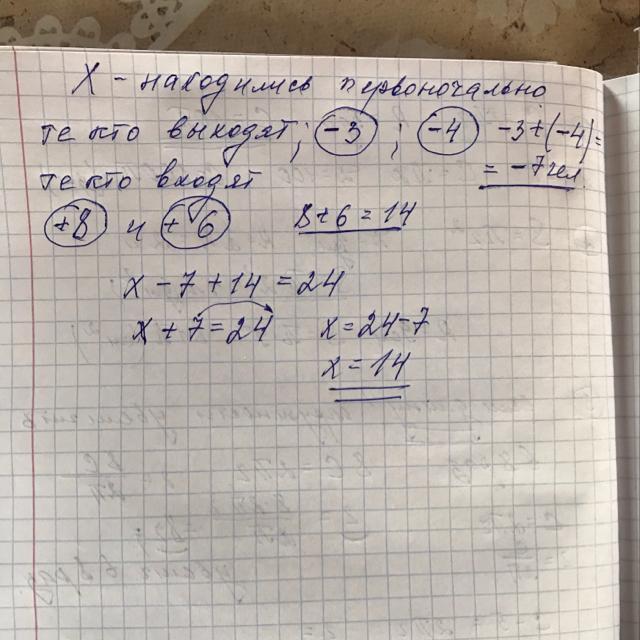 X - находились первоночально
те кто выходят; -3 ; -4 -3+(-4)=
= -7чел
те кто входят
+8 и +6 8+6=14
x - 7 + 14 = 24
x + 7 = 24 x = 24-7
x = 14